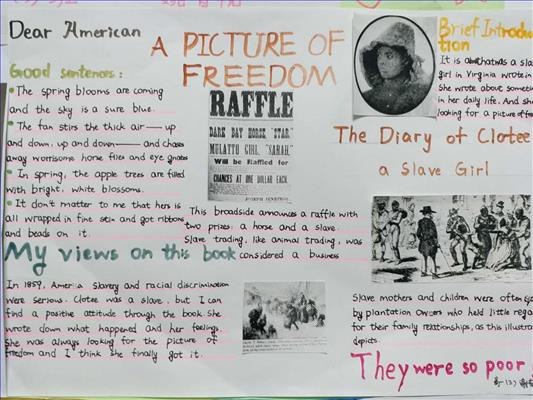 Dear American
A PICTURE OF
FREEDOM
Good sentences:
The spring blooms are coming
and the sky is a sure blue.
The fan stirs the thick air—up
and down, up and down—and chases
away worrisome horse flies and eye gnats
In spring, the apple trees are filled
with bright, white blossoms.
It don't matter to me that hers is
all wrapped in fine satin and got ribbons
and beads on it.
My views on this book
In 1859, America slavery and racial discrimination
were serious. Clotee was a slave, but I can
find a positive attitude through the book. She
wrote down what happened and her feelings.
She was always looking for the picture of
freedom and I think she finally got it.
RAFFLE
DARK BAY HORSE, "STAR,"
MULATTO GIRL, "SARAH,"
Will be Raffled for
CHANCES AT ONE DOLLAR EACH.
JOSEPH JENNINGS
This broadside announces a raffle with
two prizes: a horse and a slave.
Slave trading, like animal trading, was
considered a business
Brief Introduc
tion
It is about was a sla
girl in Virginia wrote in
She wrote about sometim
in her daily life. And she
looking for a picture of free
The Diary of Clotee
a Slave Girl
Slave mothers and children were often
by plantation owners who held little regar
for their family relationships, as this illustrat
depicts.
They were so poor